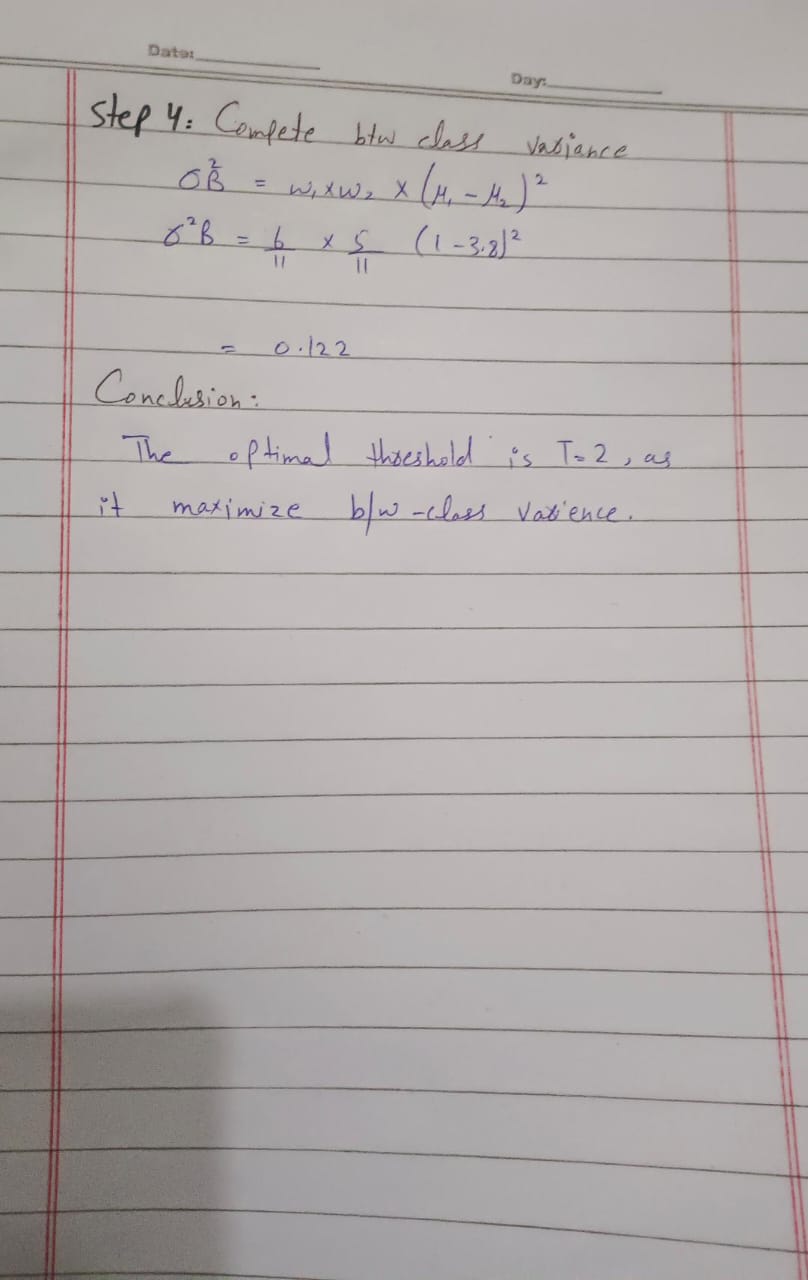 Date:
Day:
Step 4: Compete btw class variance
σ²B = w₁ x w₂ x (μ₁ - μ₂)²
σ²B = 6/11 x 5/11 (1-3.8)²
= 0.122
Conclusion:
The optimal threshold is T=2, as
it maximize b/w-class varience.